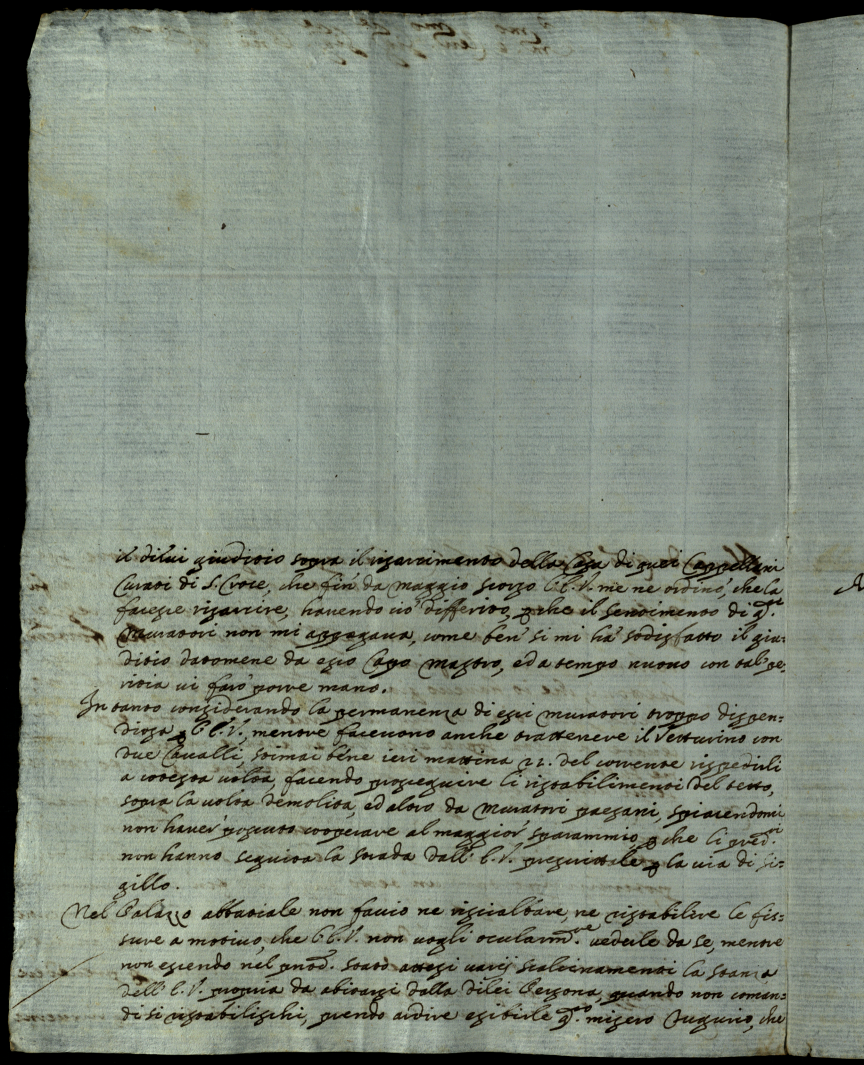 il dilui giuditio sopra il risarcimento della Casa di quei Cappellani
Curati di S. Croce, che fin da maggio scorso V.S.V. me ne ordinò, che la
facesse risarcire, havendo ciò differito, p che il sentimento di q.sti
Muratori non mi appagava, come ben sì mi hà sodisfatto il giu-
ditio datomene da esso Capo Mastro, ed a tempo nuovo con tal pe-
ritia vi farò porre mano.
In tanto considerando la permanenza di essi muratori troppo dispen-
diosa p V.S.V., mentre facevono anche trattenere il Vetturino con
due Cavalli, stimai bene ieri mattina 22. del corrente rispedirli
a cotesta volta, facendo proseguire li ristabilimenti del tetto,
sopra la volta demolita, ed altro da Muratori paesani, spiacendomi
non haver possuto cooperare al maggior sparammio, p che li pred.ti
non hanno seguita la strada dall' V.V. prescrittale p la via di Si-
gillo.
Nel Palazzo abbatiale non faccio ne riscialbare, ne ristabilire le fis-
sure a motivo, che V.S.V. non vogli ocularm.te vederle da se, mentre
non essendo nel pnte stato attesi varij scalcinamenti la stanza
dell' V.V. propria da abitarsi dalla dilei Persona, quando non coman-
di si ristabilischi, prendo ardire esibirle q.sto misero Tugurio, che